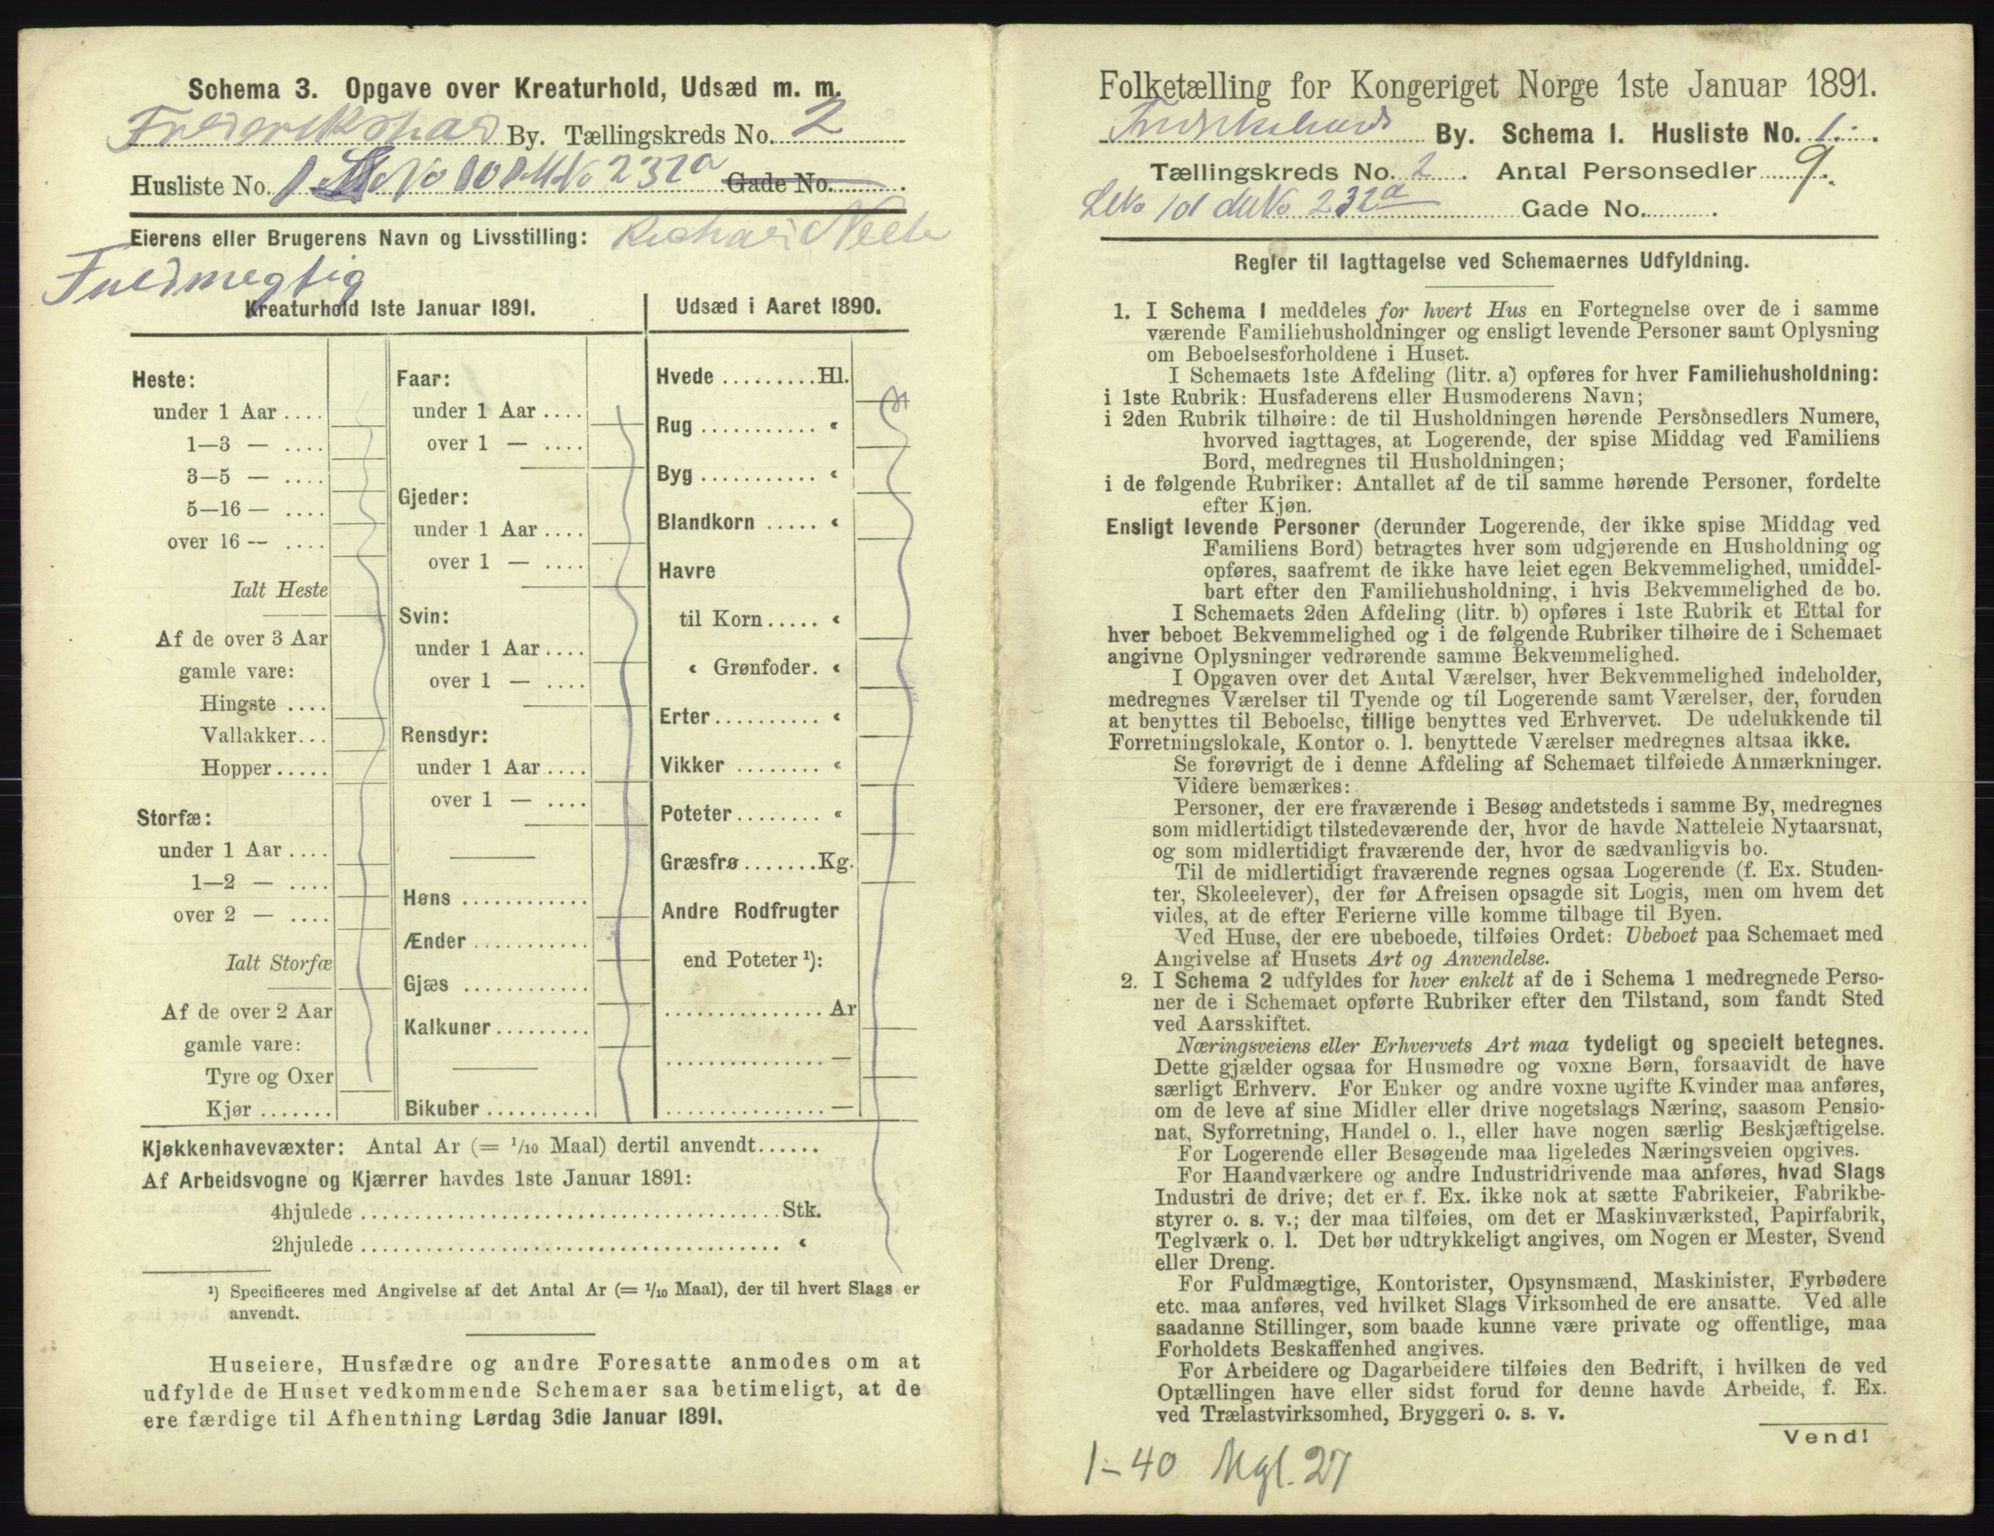 Schema 3. Opgave over Kreaturhold, Udsæd m. m.
Frederikshald By. Tællingskreds No. 2
Husliste No. 1 LNo 101 MNo 232a Gade No.
Eierens eller Brugerens Navn og Livsstilling: Richard
Fuldmegtig
Kreaturhold 1ste Januar 1891.
Heste:
under 1 Aar ....
1—3 — ....
3—5 — ....
5—16 — ....
over 16 — ....
Ialt Heste
Af de over 3 Aar
gamle vare:
Hingste ....
Vallakker...
Hopper.....
Storfæ:
under 1 Aar ....
1—2 — ....
over 2 — ....
Ialt Storfæ
Af de over 2 Aar
gamle vare:
Tyre og Oxer
Kjør .......
Faar:
under 1 Aar ....
over 1 — ....
Gjeder:
under 1 Aar ....
over 1 — ....
Svin:
under 1 Aar ....
over 1 — ....
Rensdyr:
under 1 Aar ....
over 1 — ....
Høns ............
Ænder ...........
Gjæs ............
Kalkuner.........
Bikuber ..........
Udsæd i Aaret 1890.
Hvede .........Hl.
Rug ........... «
Byg ........... «
Blandkorn ..... «
Havre
til Korn..... «
« Grønfoder. «
Erter.......... «
Vikker ........ «
Poteter........ «
Græsfrø .......Kg.
Andre Rodfrugter
end Poteter ¹):
............... Ar
............... —
............... —
Kjøkkenhavevæxter: Antal Ar (= 1/10 Maal) dertil anvendt......
Af Arbeidsvogne og Kjærrer havdes 1ste Januar 1891:
4hjulede ........................................ Stk.
2hjulede ........................................ «
¹) Specificeres med Angivelse af det Antal Ar (= 1/10 Maal), der til hvert Slags er
anvendt.
Huseiere, Husfædre og andre Foresatte anmodes om at
udfylde de Huset vedkommende Schemaer saa betimeligt, at de
ere færdige til Afhentning Lørdag 3die Januar 1891.
Folketælling for Kongeriget Norge 1ste Januar 1891.
Fredrikshald By. Schema 1. Husliste No. 1.
Tællingskreds No. 2. Antal Personsedler 9.
LNo 101 MNo 232a Gade No.
Regler til Iagttagelse ved Schemaernes Udfyldning.
1. I Schema 1 meddeles for hvert Hus en Fortegnelse over de i samme
værende Familiehusholdninger og ensligt levende Personer samt Oplysning
om Beboelsesforholdene i Huset.
I Schemaets 1ste Afdeling (litr. a) opføres for hver Familiehusholdning:
i 1ste Rubrik: Husfaderens eller Husmoderens Navn;
i 2den Rubrik tilhøire: de til Husholdningen hørende Personsedlers Numere,
hvorved iagttages, at Logerende, der spise Middag ved Familiens
Bord, medregnes til Husholdningen;
i de følgende Rubriker: Antallet af de til samme hørende Personer, fordelte
efter Kjøn.
Ensligt levende Personer (derunder Logerende, der ikke spise Middag ved
Familiens Bord) betragtes hver som udgjørende en Husholdning og
opføres, saafremt de ikke have leiet egen Bekvemmelighed, umiddel-
bart efter den Familiehusholdning, i hvis Bekvemmelighed de bo.
I Schemaets 2den Afdeling (litr. b) opføres i 1ste Rubrik et Ettal for
hver beboet Bekvemmelighed og i de følgende Rubriker tilhøire de i Schemaet
angivne Oplysninger vedrørende samme Bekvemmelighed.
I Opgaven over det Antal Værelser, hver Bekvemmelighed indeholder,
medregnes Værelser til Tyende og til Logerende samt Værelser, der, foruden
at benyttes til Beboelse, tillige benyttes ved Erhvervet. De udelukkende til
Forretningslokale, Kontor o. l. benyttede Værelser medregnes altsaa ikke.
Se forøvrigt de i denne Afdeling af Schemaet tilføiede Anmærkninger.
Videre bemærkes:
Personer, der ere fraværende i Besøg andetsteds i samme By, medregnes
som midlertidigt tilstedeværende der, hvor de havde Natteleie Nytaarsnat,
og som midlertidigt fraværende der, hvor de sædvanligvis bo.
Til de midlertidigt fraværende regnes ogsaa Logerende (f. Ex. Studen-
ter, Skoleelever), der før Afreisen opsagde sit Logis, men om hvem det
vides, at de efter Ferierne ville komme tilbage til Byen.
Ved Huse, der ere ubeboede, tilføies Ordet: Ubeboet paa Schemaet med
Angivelse af Husets Art og Anvendelse.
2. I Schema 2 udfyldes for hver enkelt af de i Schema 1 medregnede Perso-
ner de i Schemaet opførte Rubriker efter den Tilstand, som fandt Sted
ved Aarsskiftet.
Næringsveiens eller Erhvervets Art maa tydeligt og specielt betegnes.
Dette gjælder ogsaa for Husmødre og voxne Børn, forsaavidt de have
særligt Erhverv. For Enker og andre voxne ugifte Kvinder maa anføres,
om de leve af sine Midler eller drive nogetslags Næring, saasom Pensio-
nat, Syforretning, Handel o. l., eller have nogen særlig Beskjæftigelse.
For Logerende eller Besøgende maa ligeledes Næringsveien opgives.
For Haandværkere og andre Industridrivende maa anføres, hvad Slags
Industri de drive; det er f. Ex. ikke nok at sætte Fabrikeier, Fabrikbe-
styrer o. s. v.; der maa tilføies, om det er Maskinværksted, Papirfabrik,
Teglværk o. l. Det bør udtrykkeligt angives, om Nogen er Mester, Svend
eller Dreng.
For Fuldmægtige, Kontorister, Opsynsmænd, Maskinister, Fyrbødere
etc. maa anføres, ved hvilket Slags Virksomhed de ere ansatte. Ved alle
saadanne Stillinger, som baade kunne være private og offentlige, maa
Forholdets Beskaffenhed angives.
For Arbeidere og Dagarbeidere tilføies den Bedrift, i hvilken de ved
Optællingen have eller sidst forud for denne havde Arbeide, f. Ex.
ved Trælastvirksomhed, Bryggeri o. s. v.
Vend!
1–40 Mgl. 27